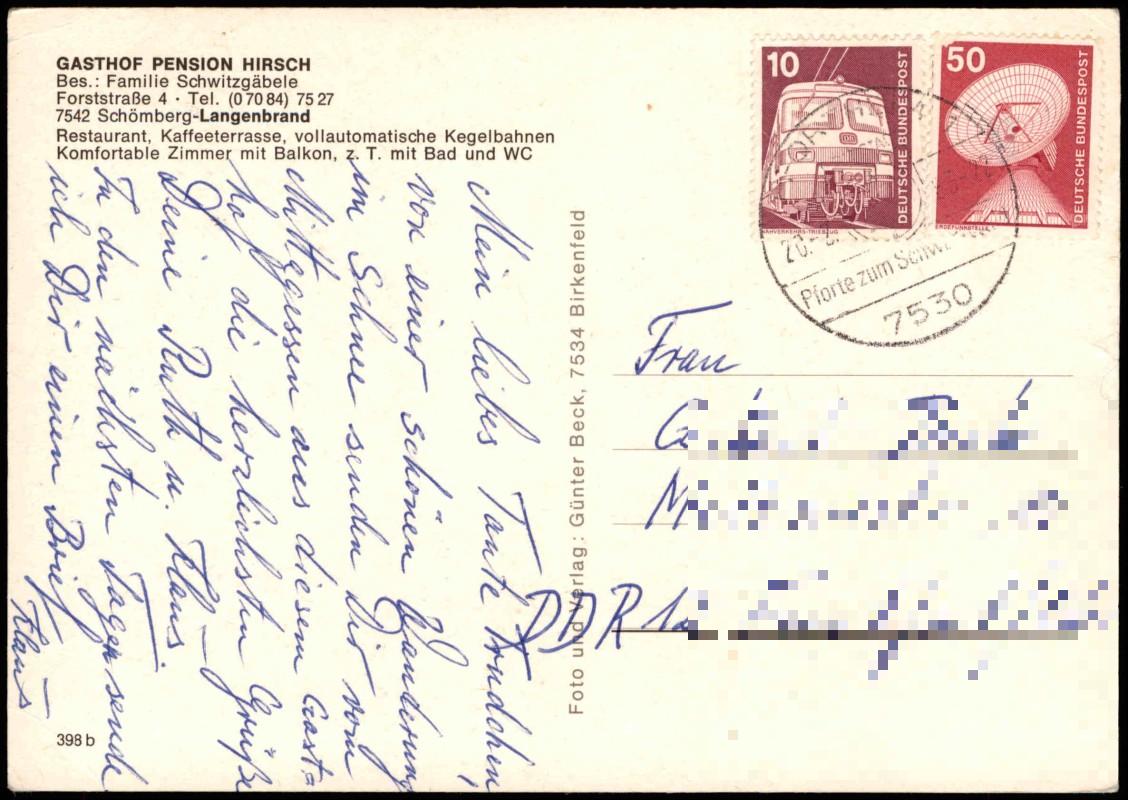 GASTHOF PENSION HIRSCH
Bes.: Familie Schwitzgäbele
Forststraße 4 · Tel. (0 70 84) 75 27
7542 Schömberg-Langenbrand
Restaurant, Kaffeeterrasse, vollautomatische Kegelbahnen
Komfortable Zimmer mit Balkon, z. T. mit Bad und WC
Mein liebes Tante Trudchen,
von einer schönen Wanderung
im Schnee senden Dir vom
Mittagessen aus diesem Gast=
hof die herzlichsten Grüße
Deine Ruth u. Klaus.
In den nächsten Tagen sende
ich Dir einen Brief
Klaus
398 b
Foto und Verlag: Günter Beck, 7534 Birkenfeld
10
DEUTSCHE BUNDESPOST
NAHVERKEHRS-TRIEBZUG
50
DEUTSCHE BUNDESPOST
ERDEFUNKSTELLE
20.
Pforte zum
7530
Frau
DDR